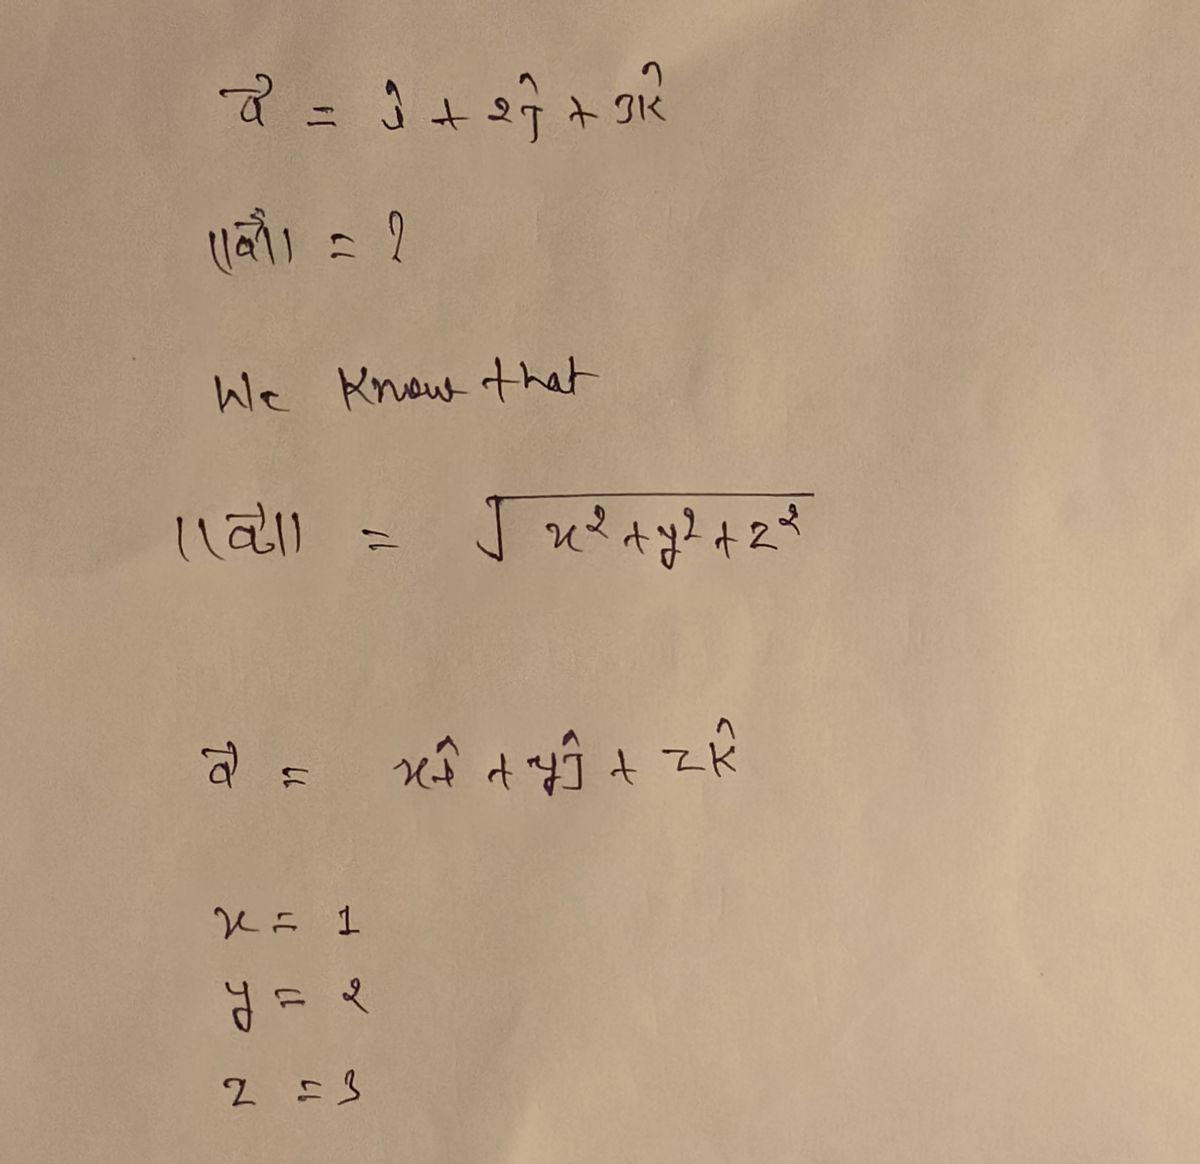 a⃗ = î + 2ĵ + 3k̂
||a⃗|| = ?
We Know that
||a⃗|| = √x² + y² + z²
a⃗ = xî + yĵ + zk̂
x = 1
y = 2
z = 3